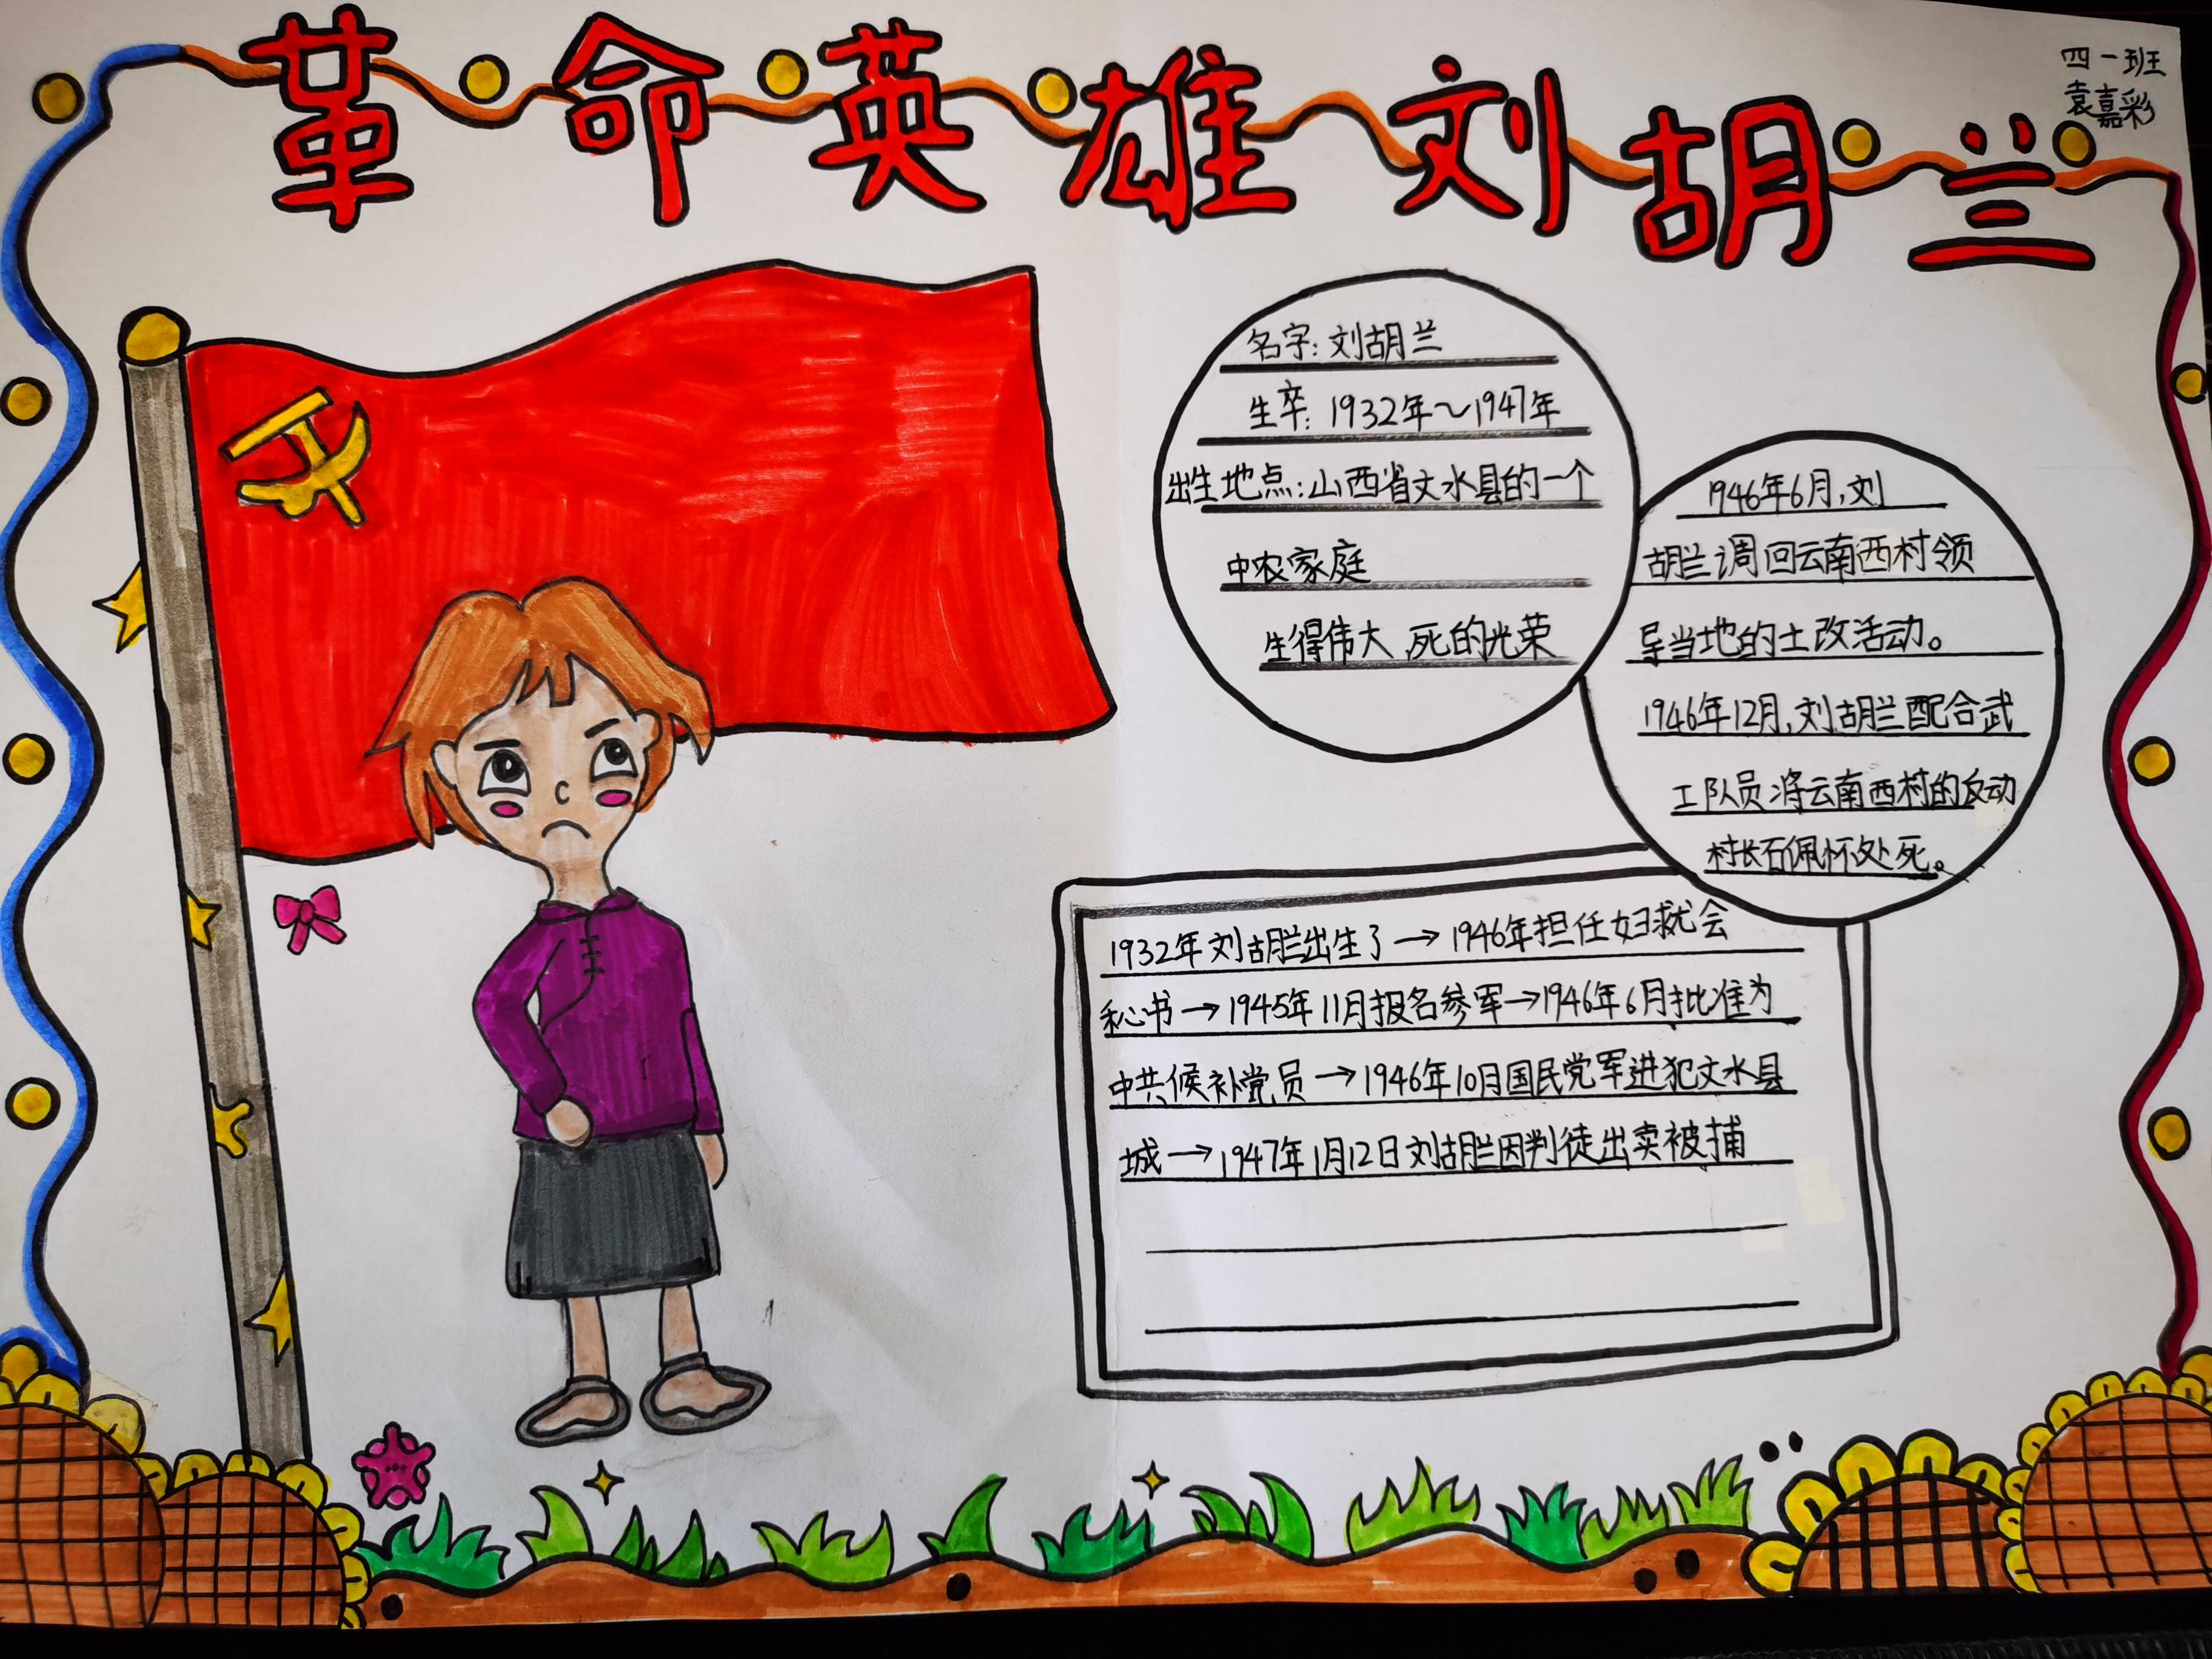 革命英雄刘胡兰
四一班
袁嘉彩
名字:刘胡兰
生卒:1932年～1947年
出生地点:山西省文水县的一个
中农家庭
生得伟大 死的光荣
1946年6月,刘
胡兰调回云南西村领
导当地的土改活动。
1946年12月,刘胡兰配合武
工队员将云南西村的反动
村长石佩怀处死。
1932年刘胡兰出生了→1946年担任妇救会
秘书→1945年11月报名参军→1946年6月批准为
中共候补党员→1946年10月国民党军进犯文水县
城→1947年1月12日刘胡兰因判徒出卖被捕